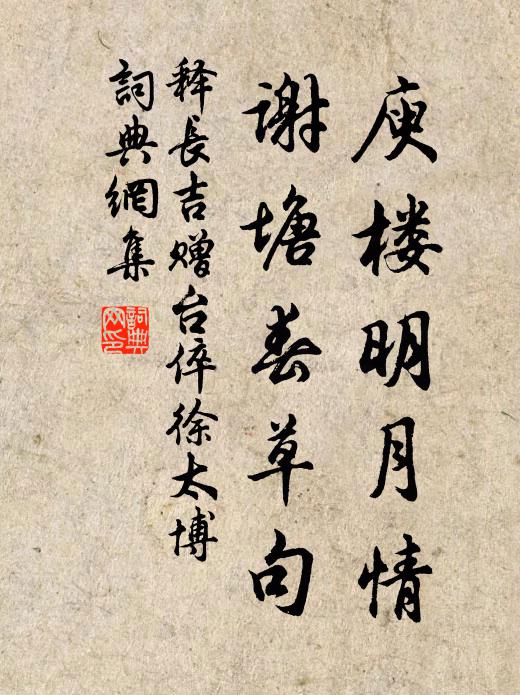 庾楼明月情
谢塘春草句
释长吉赠台倅徐太博
词典網集
詞典网印